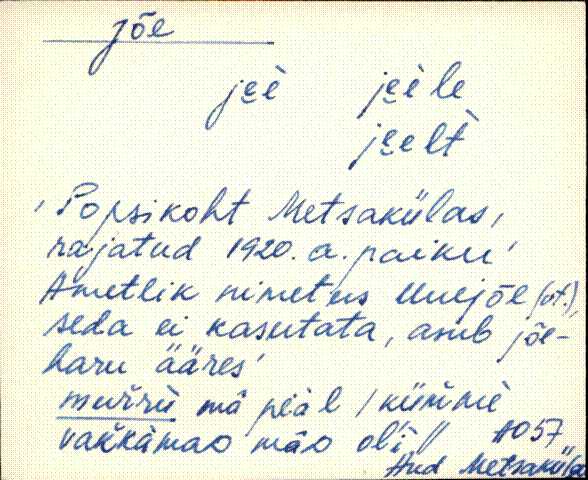 jõe
jeè jeèle
jeelt̀
'Popsikoht Metsakülas,
rajatud 1920. a. paiku'
Ametlik nimetus Uuejõe (vt.),
seda ei kasutata, asub jõe-
haru ääres'
murrù mâ peäl / kümmè
vakkàmaa mâa oli //
A057
Aud Metsaküla